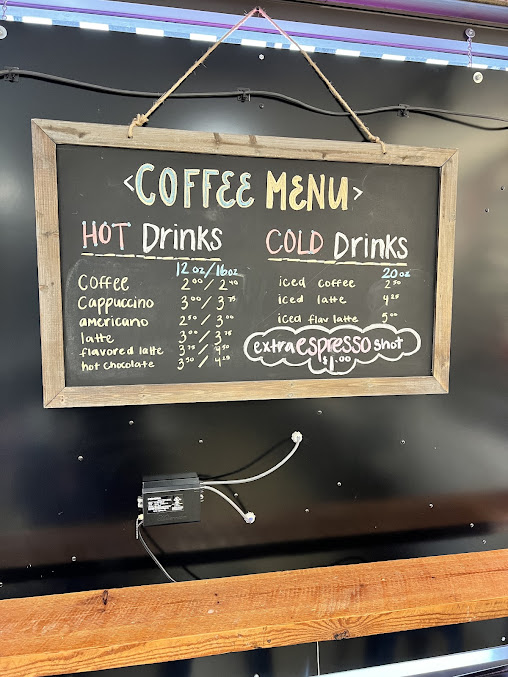 <COFFEE MENU>
HOT Drinks
12 oz / 16 oz
Coffee 2.00 / 2.40
Cappuccino 3.00 / 3.75
americano 2.50 / 3.00
latte 3.00 / 3.75
flavored latte 3.75 / 4.50
hot chocolate 3.50 / 4.25
COLD Drinks
20 oz
iced coffee 2.50
iced latte 4.25
iced flav latte 5.00
extra espresso shot
$1.00